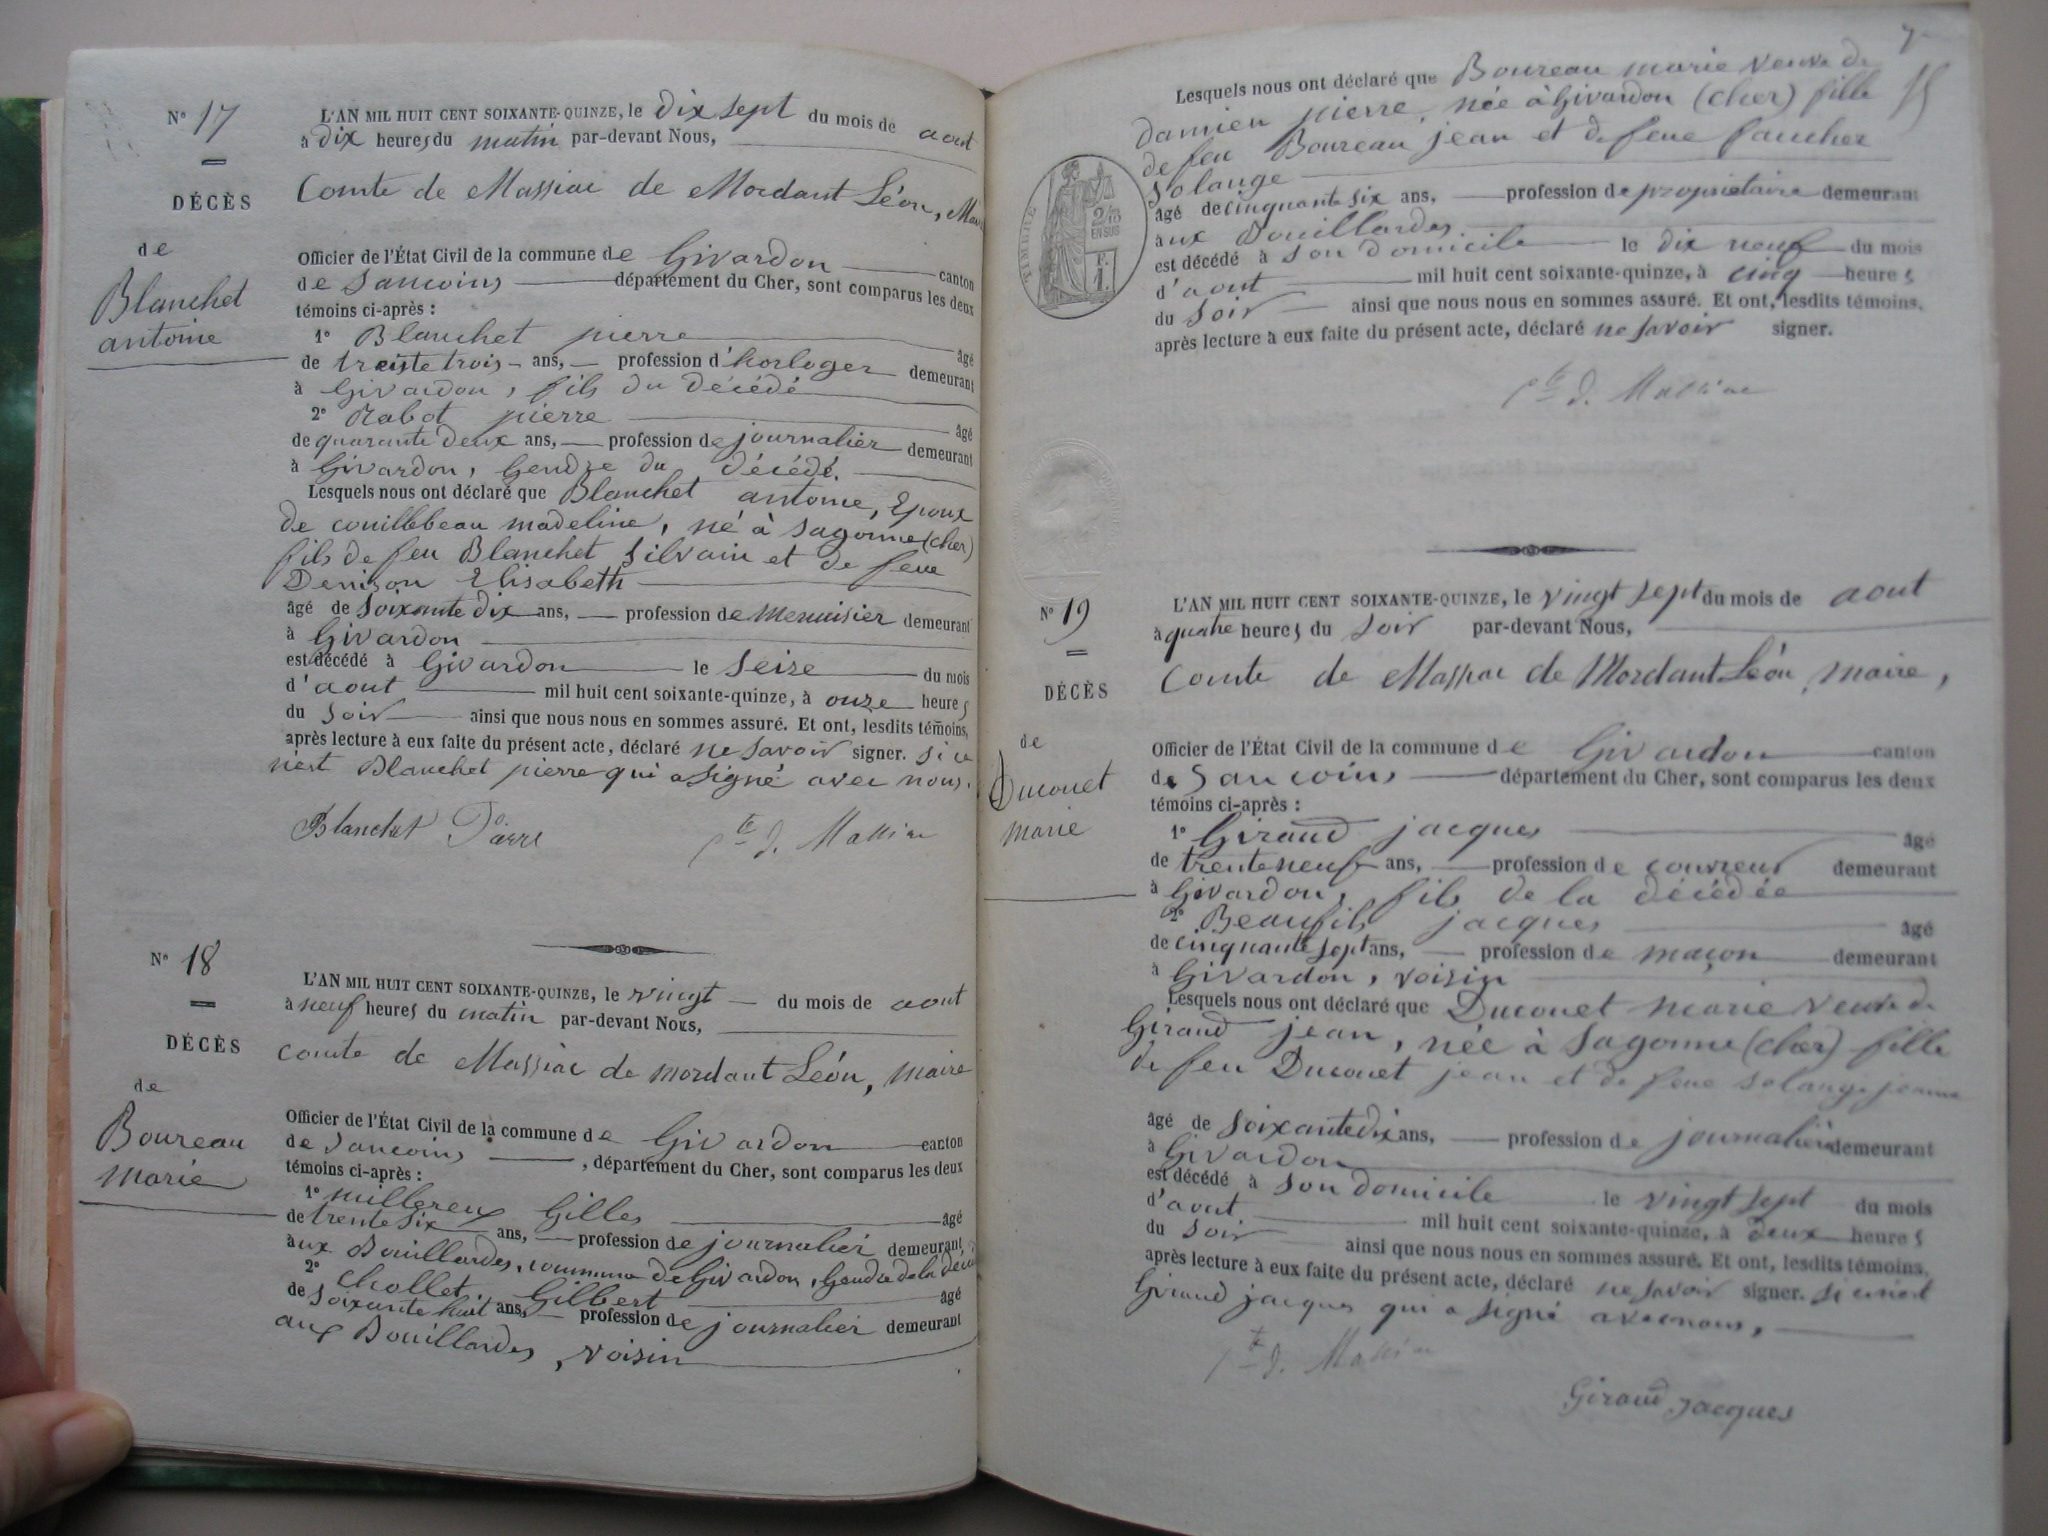 N° 17
DÉCÈS
de
Blanchet
antoine
L'AN MIL HUIT CENT SOIXANTE-QUINZE, le dix sept du mois de aout
à dix heures du matin par-devant Nous,
Comte de Massiac de Mordant Léon, Maire
Officier de l'État Civil de la commune de Givardon canton
de Sancoins département du Cher, sont comparus les deux
témoins ci-après :
1° Blanchet pierre âgé
de trente trois ans, profession d'horloger demeurant
à Givardon, fils du décédé
2° Rabot pierre âgé
de quarante deux ans, profession de journalier demeurant
à Givardon, Gendre du décédé.
Lesquels nous ont déclaré que Blanchet antoine, Epoux
de couillebeau madeline, né à Sagonne (cher)
fils de feu Blanchet Silvain et de feue
Denizon Elisabeth
âgé de soixante dix ans, profession de Menuisier demeurant
à Givardon
est décédé à Givardon le Seize du mois
d'aout mil huit cent soixante-quinze, à onze heures
du Soir ainsi que nous nous en sommes assuré. Et ont, lesdits témoins,
après lecture à eux faite du présent acte, déclaré ne savoir signer. si ce
n'est Blanchet pierre qui a signé avec nous.
Blanchet Pierre Cte d. Massiac
N° 18
DÉCÈS
de
Boureau
marie
L'AN MIL HUIT CENT SOIXANTE-QUINZE, le vingt du mois de aout
à neuf heures du matin par-devant Nous,
comte de Massiac de mordant Léon, maire
Officier de l'État Civil de la commune de Givardon canton
de Sancoins, département du Cher, sont comparus les deux
témoins ci-après :
1° millereux Gilles âgé
de trente six ans, profession de journalier demeurant
aux Bouillardes, commune de Givardon, Gendre de la
2° chollet Gilbert âgé
de soixante huit ans, profession de journalier demeurant
aux Bouillardes, voisin
7
Lesquels nous ont déclaré que Boureau marie veuve de
damien pierre, née à Givardon (cher) fille
de feu Boureau jean et de feue faucher
Solange
âgé de cinquante six ans, profession de propriétaire demeurant
aux Bouillardes
est décédé à son domicile le dix neuf du mois
d'aout mil huit cent soixante-quinze, à cinq heures
du soir ainsi que nous nous en sommes assuré. Et ont, lesdits témoins,
après lecture à eux faite du présent acte, déclaré ne savoir signer.
Cte d. Massiac
TIMBRE
2/10
EN SUS
F.
1.
N° 19
DÉCÈS
de
Ducouet
marie
L'AN MIL HUIT CENT SOIXANTE-QUINZE, le vingt sept du mois de aout
à quatre heures du soir par-devant Nous,
Comte de Massiac de Mordant Léon, maire,
Officier de l'État Civil de la commune de Givardon canton
de Sancoins département du Cher, sont comparus les deux
témoins ci-après :
1° Giraud jacques âgé
de trente neuf ans, profession de couvreur demeurant
à Givardon, fils de la décédée
2° Beaufils jacques âgé
de cinquante sept ans, profession de maçon demeurant
à Givardon, voisin
Lesquels nous ont déclaré que Ducouet marie veuve de
Giraud jean, née à Sagonne (cher) fille
de feu Ducouet jean et de feue solange jeanne
âgé de soixante dix ans, profession de journalière demeurant
à Givardon
est décédé à son domicile le vingt sept du mois
d'aout mil huit cent soixante-quinze, à deux heures
du soir ainsi que nous nous en sommes assuré. Et ont, lesdits témoins,
après lecture à eux faite du présent acte, déclaré ne savoir signer. si ce n'est
Giraud jacques qui a signé avec nous,
Cte d. Massiac
Giraud Jacques